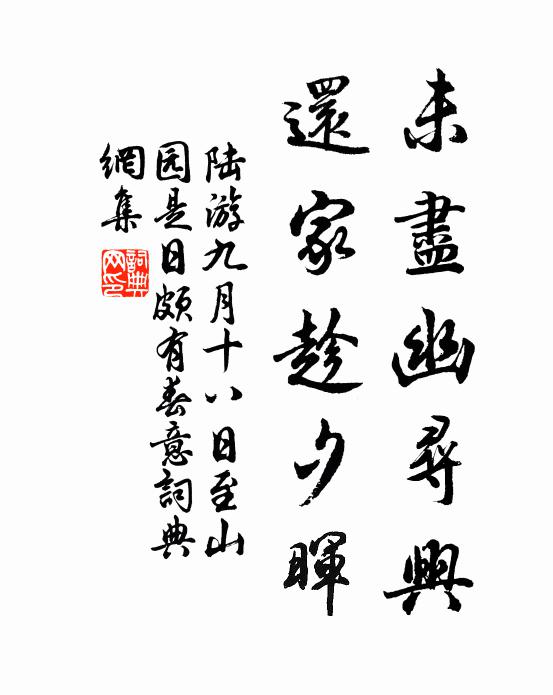 未盡幽尋興
還家趁夕暉
陆游九月十八日至山
园是日頗有春意詞典
網集
詞典
网印